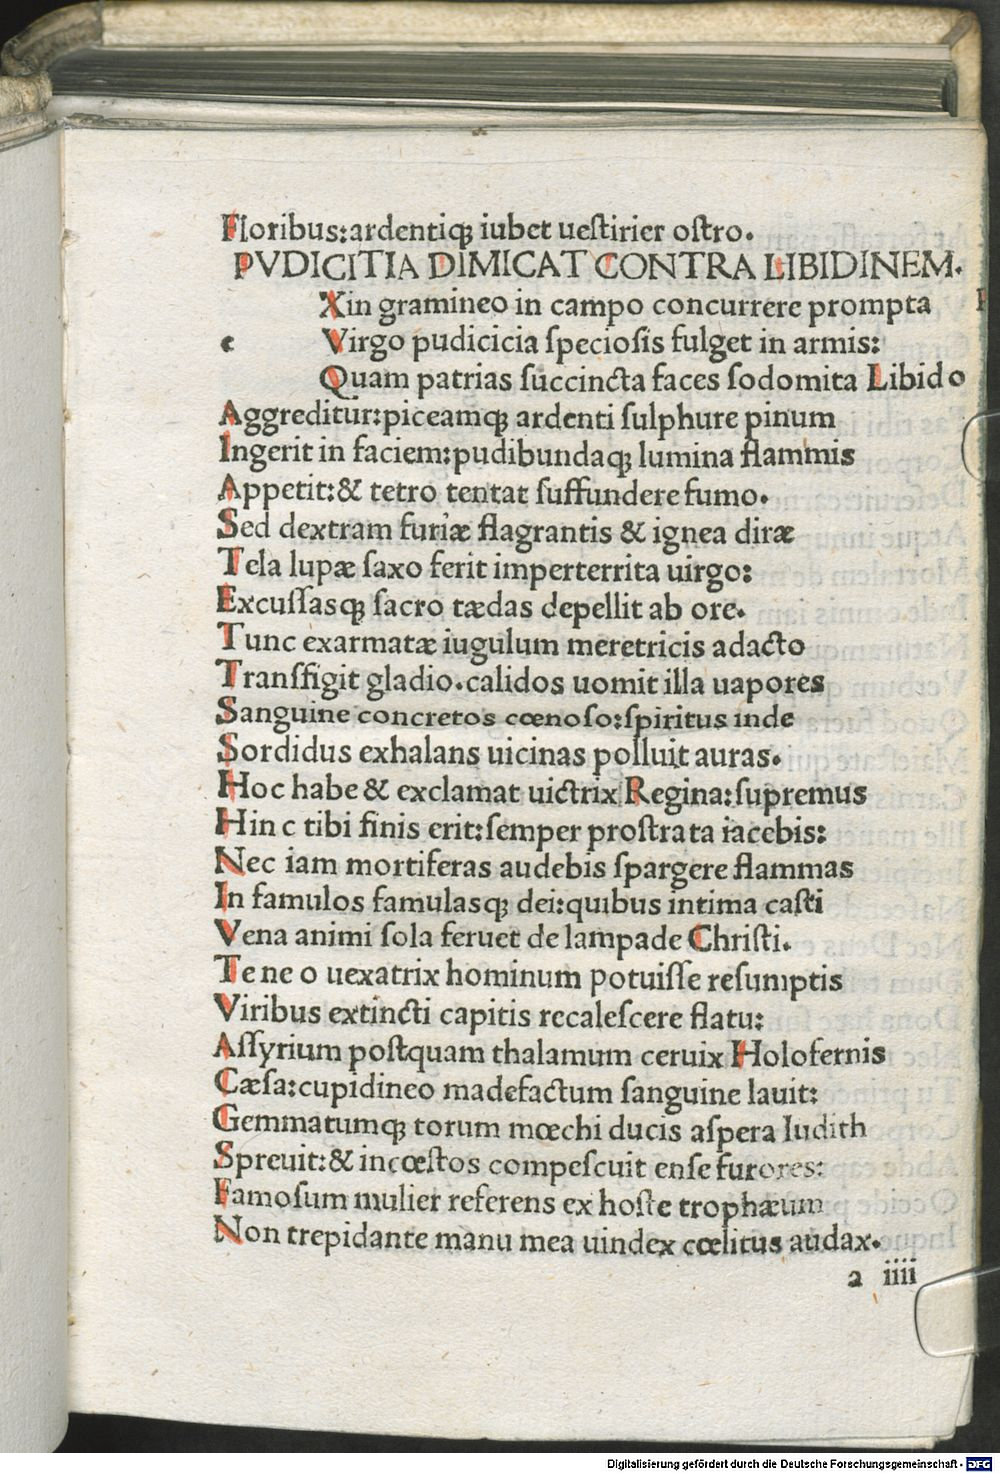 Floribus:ardentiqꝫ iubet ueſtirier oſtro.
PVDICITIA DIMICAT CONTRA LIBIDINEM.
Xin gramineo in campo concurrere prompta
e Virgo pudicicia ſpecioſis fulget in armis:
Quam patrias ſuccincta faces ſodomita Libido
Aggreditur:piceamqꝫ ardenti ſulphure pinum
Ingerit in faciem:pudibundaqꝫ lumina flammis
Appetit:& tetro tentat ſuffundere fumo.
Sed dextram furiæ flagrantis & ignea diræ
Tela lupæ ſaxo ferit imperterrita uirgo:
Excuſſasqꝫ ſacro tædas depellit ab ore.
Tunc exarmatæ iugulum meretricis adacto
Tranſfigit gladio.calidos uomit illa uapores
Sanguine concretos cœnoſo:ſpiritus inde
Sordidus exhalans uicinas polluit auras.
Hoc habe & exclamat uictrix Regina:ſupremus
Hin c tibi finis erit:ſemper proſtrata iacebis:
Nec iam mortiferas audebis ſpargere flammas
In famulos famulasqꝫ dei:quibus intima caſti
Vena animi ſola feruet de lampade Chriſti.
Te ne o uexatrix hominum potuiſſe reſumptis
Viribus extincti capitis recaleſcere flatu:
Aſſyrium poſtquam thalamum ceruix Holofernis
Cæſa:cupidineo madefactum ſanguine lauit:
Gemmatumqꝫ torum mœchi ducis aſpera Iudith
Spreuit:& incœſtos compeſcuit enſe furores:
Famoſum mulier referens ex hoſte trophæum
Non trepidante manu mea uindex cœlitus audax.
a iiii
Digitalisierung gefördert durch die Deutsche Forschungsgemeinschaft - DFG